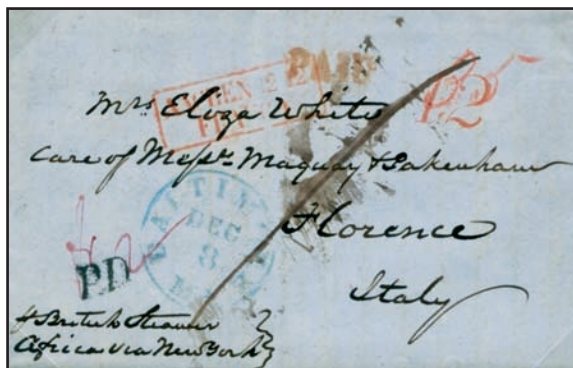 PAID
12
Mrs Eliza White
Care of Messrs Maquay & Pakenham
Florence
Italy
BALTIMORE
DEC
8
PD
pr British Steamer
Africa via New York